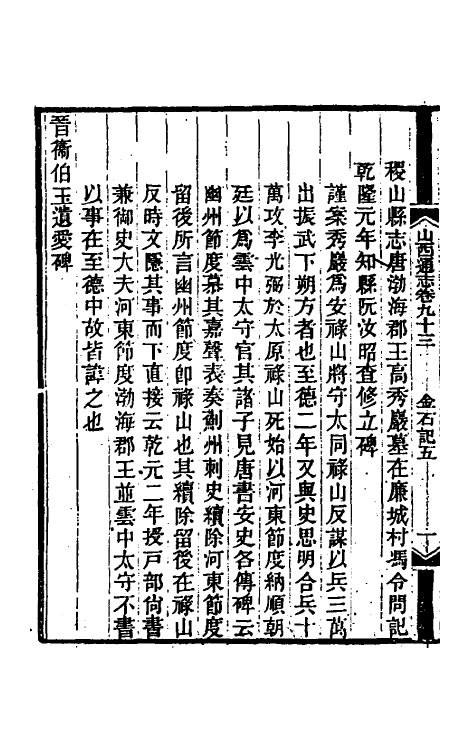 山西通志卷九十三
金石記五
稷山縣志唐渤海郡王高秀巖墓在廉城村馮令問記
乾隆元年知縣阮汝昭查修立碑
謹案秀巖爲安祿山將守大同祿山反謀以兵三萬
出振武下朔方者也至德二年又與史思明合兵十
萬攻李光弼於太原祿山死始以河東節度納順朝
廷以爲雲中太守官其諸子見唐書安史各傳碑云
幽州節度慕其嘉聲表奏薊州刺史續除河東節度
留後所言幽州節度卽祿山也其續除留後在祿山
反時文隱其事而下直接云乾元二年授戸部尙書
兼御史大夫河東節度渤海郡王並雲中太守不書
以事在至德中故皆諱之也
晉衞伯玉遺愛碑